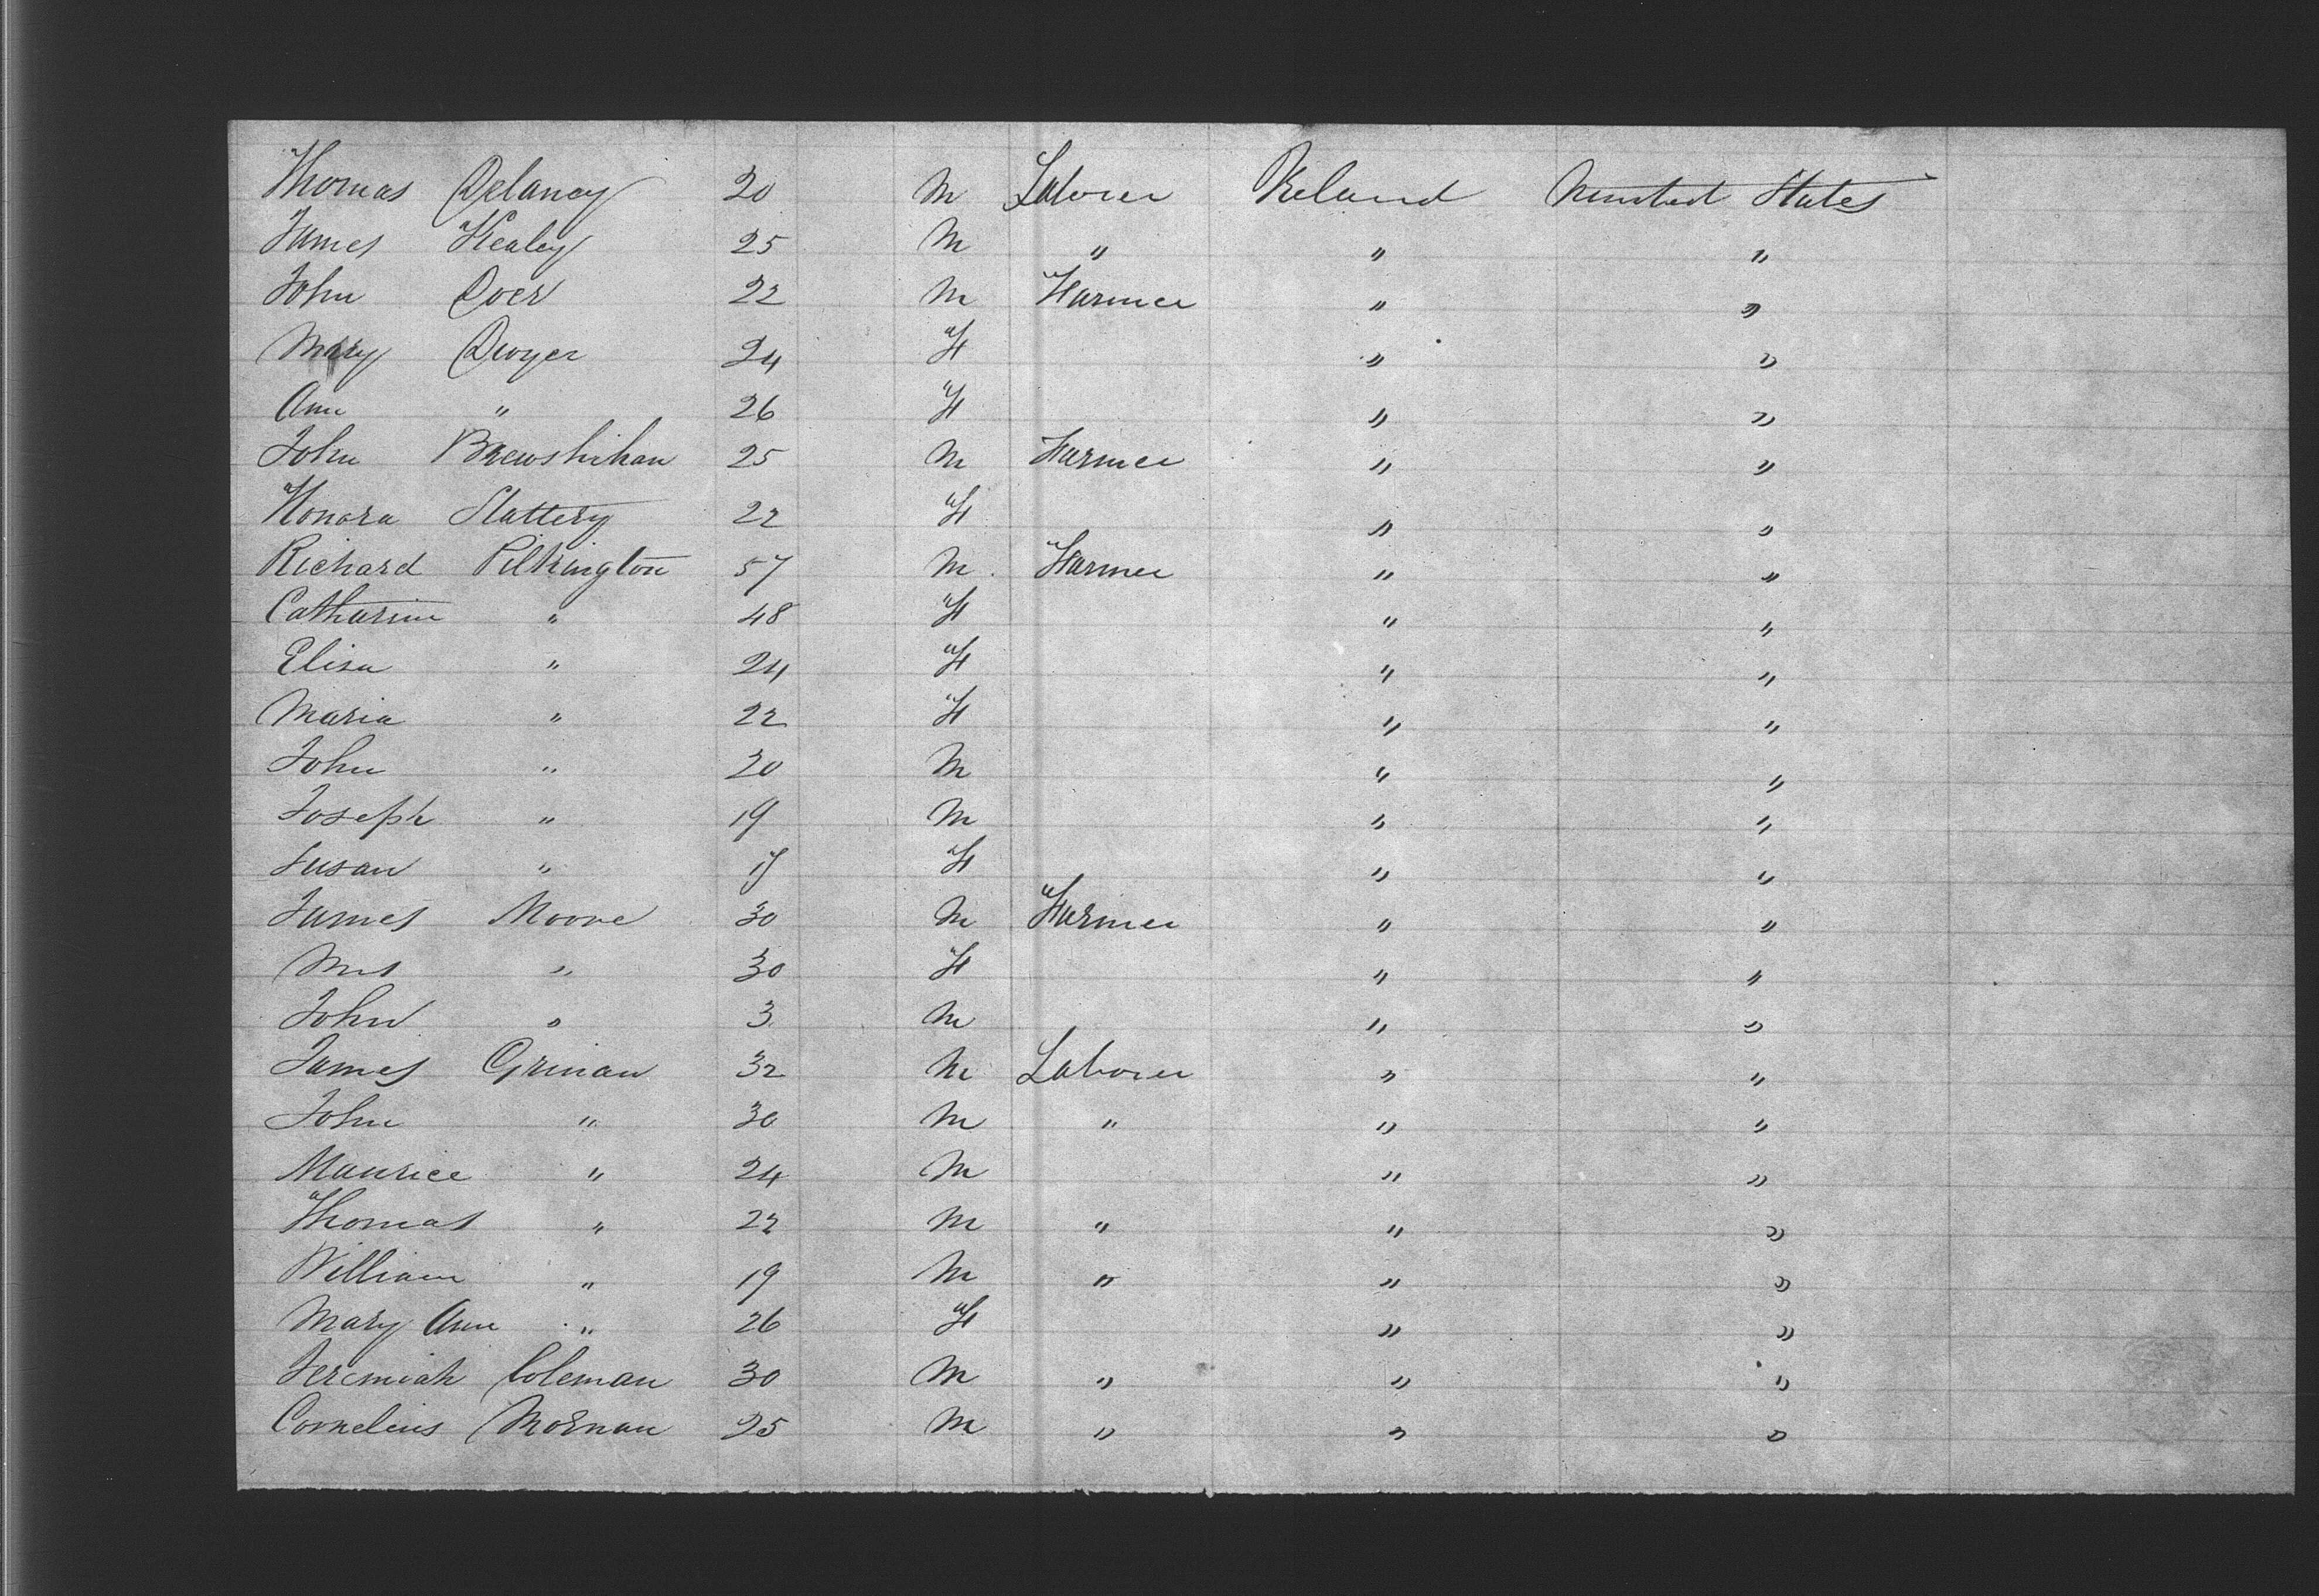 Thomas Delaney 20 M Laborer Ireland United States
James Healey 25 M " " "
John Doer 22 M Farmer " "
Mary Dwyer 24 F " "
Ann " 26 F " "
John Brewshihan 25 M Farmer " "
Honora Slattery 22 F " "
Richard Pilkington 57 M Farmer " "
Catharine " 48 F " "
Elisa " 24 F " "
Maria " 22 F " "
John " 20 M " "
Joseph " 19 M " "
Susan " 17 F " "
James Moore 30 M Farmer " "
Mrs " 30 F " "
John " 3 M " "
James Grinan 32 M Laborer " "
John " 30 M " " "
Maurice " 24 M " "
Thomas " 22 M " " "
William " 19 M " " "
Mary Ann " 26 F " "
Jeremiah Coleman 30 M " " "
Cornelius 25 M " " "